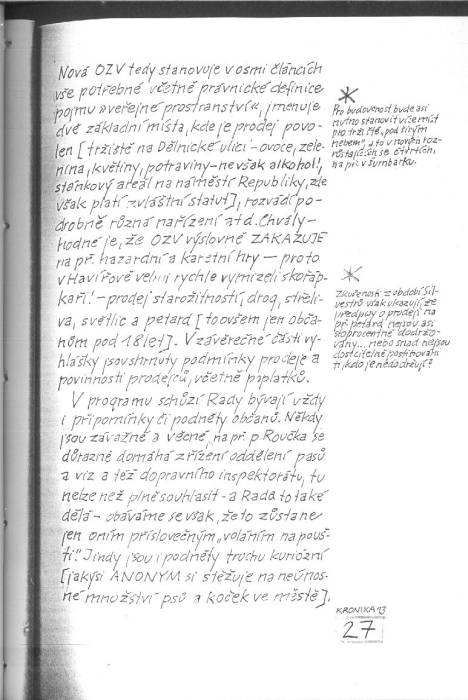 Nová OZV tedy stanovuje v osmi článcích
vše potřebné včetně právnické definice
pojmu »veřejné prostranství«, jmenuje
dvě základní místa, kde je prodej povo-
len [tržiště na Dělnické ulici - ovoce, zele-
nina, květiny, potraviny - ne však alkohol!,
stánkový areál na náměstí Republiky, zde
však platí zvláštní statut], rozvádí po-
drobně různá nařízení atd. Chvály-
hodné je, že OZV výslovně ZAKAZUJE
na př. hazardní a karetní hry — proto
v Havířově velmi rychle vymizeli skořáp-
kaři! - prodej starožitností, drog, střeli-
va, světlic a petard [to ovšem jen obča-
nům pod 18 let]. V závěrečné části vy-
hlášky jsou shrnuty podmínky prodeje a
povinnosti prodejců, včetně poplatků.
V programu schůzí Rady bývají vždy
i připomínky či podněty občanů. Někdy
jsou závažné a věcné, na př. p. Roučka se
důrazně domáhá zřízení oddělení pasů
a víz a též dopravního inspektorátu, tu
nelze než plně souhlasit - a Rada to také
dělá - obáváme se však, že to zůstane
jen oním příslovečným „voláním na pouš-
ti." Jindy jsou i podněty trochu kuriózní
[jakýsi ANONYM si stěžuje na neúnos-
né množství psů a koček ve městě].
*
Pro budoucnost bude asi
nutno stanovit více míst
pro tržiště, pod širým
nebem, a to v nových roz-
růstajících se čtvrtích,
na př. v Šumbarku.
*
Zkušenosti z období Sil-
vestrů však ukazují, že
předpisy o prodeji na
př. petard nejsou asi
stoprocentně dodržo-
vány... nebo snad nejsou
dost citelně postihováni
ti, kdo je nedodržují?
KRONIKA 93
27